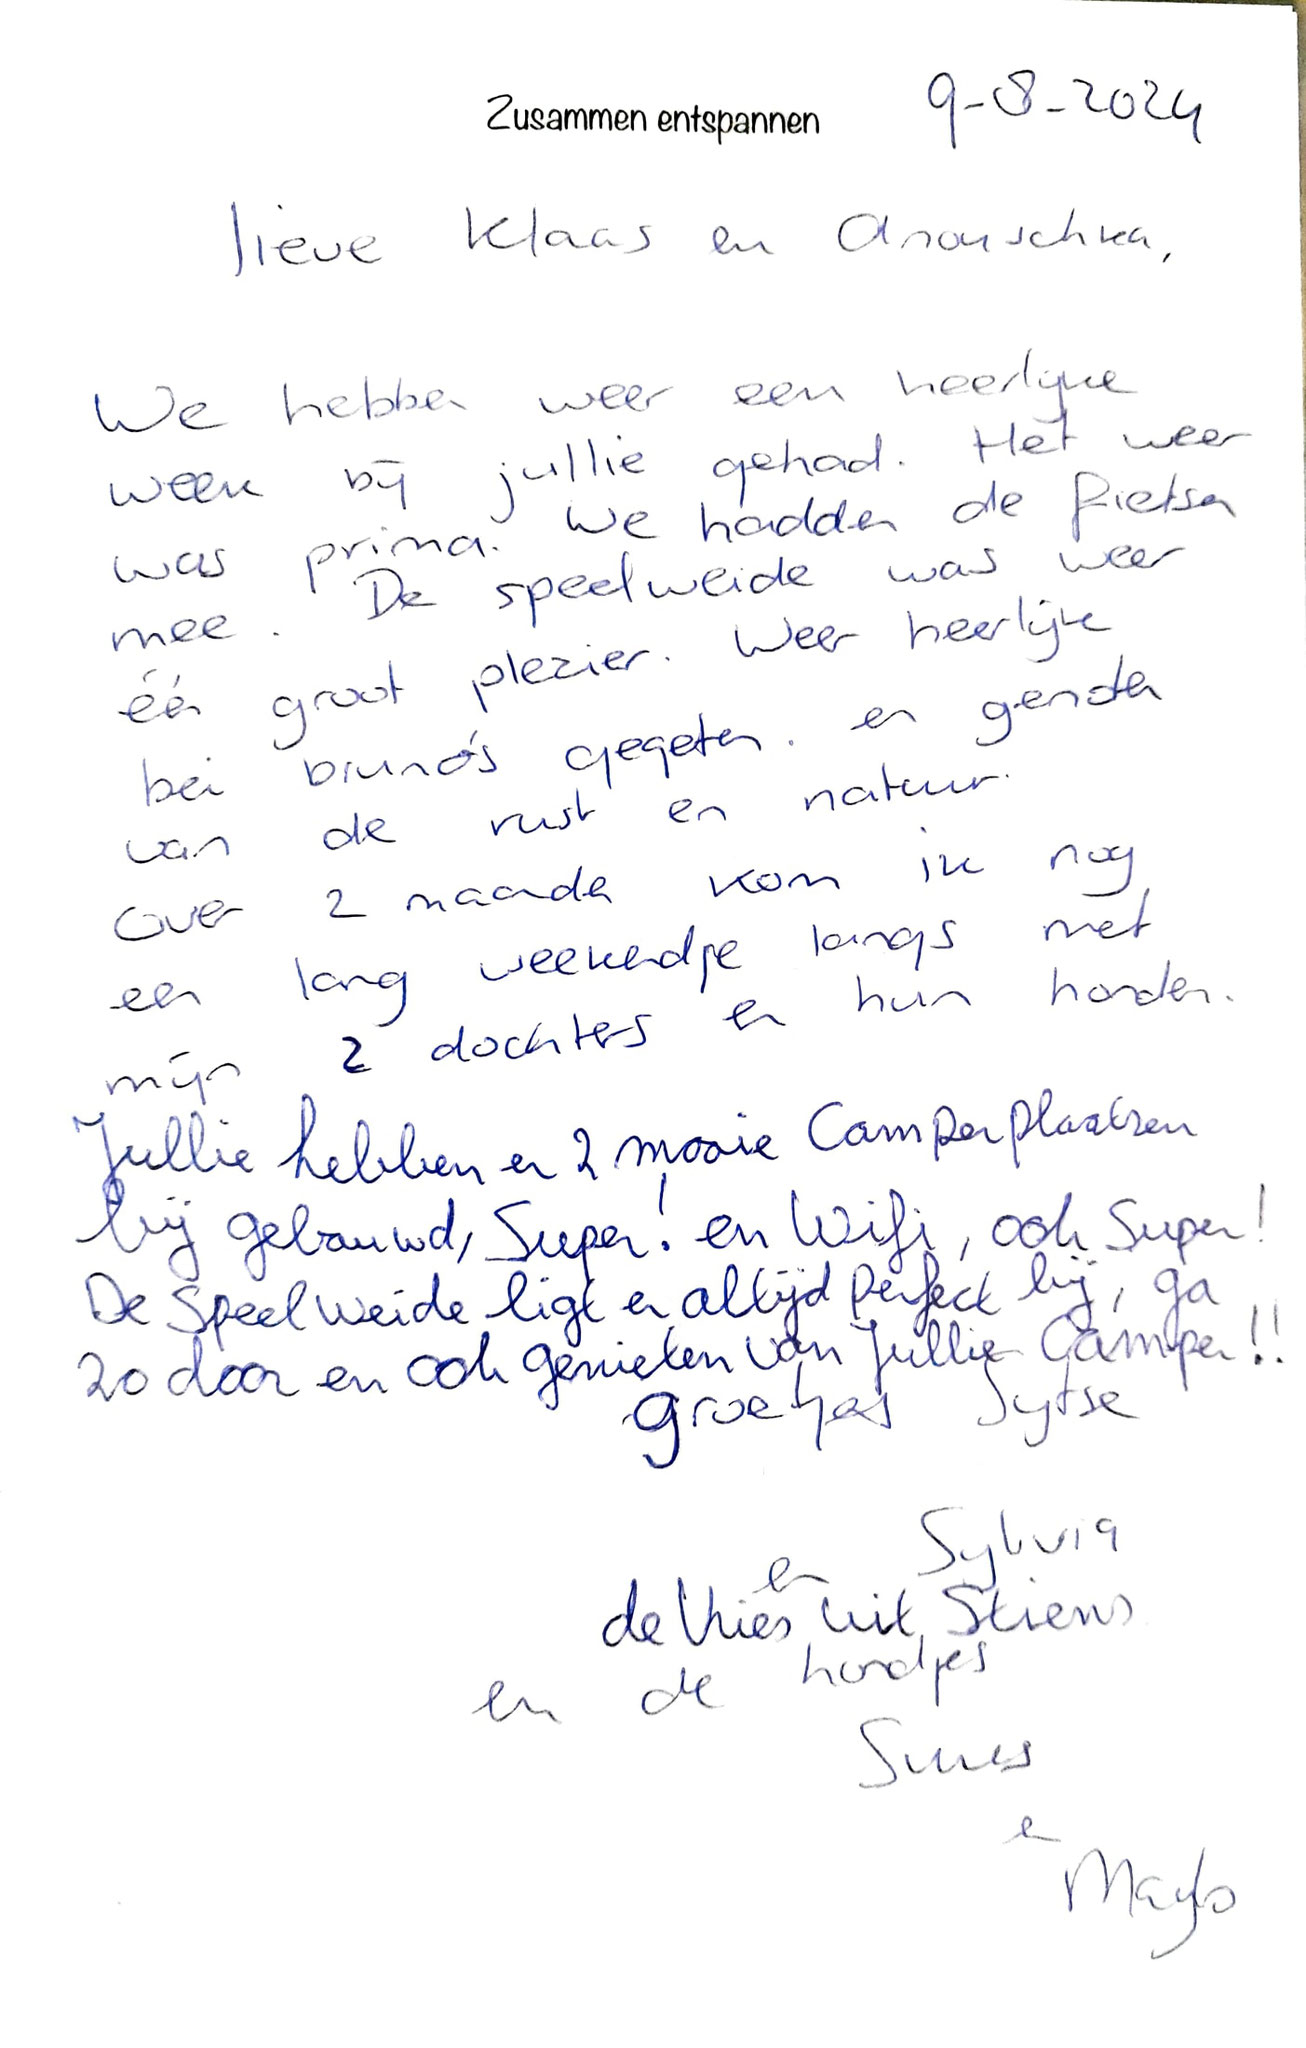 Zusammen entspannen 9-8-2024
lieve Klaas en Anouschka,
We hebben weer een heerlijke
week bij jullie gehad. Het weer
was prima. We hadden de fietsen
mee. De speelweide was weer
één groot plezier. Weer heerlijk
bei bruno's gegeten. en genoten
van de rust en natuur.
over 2 maanden kom ik nog
een lang weekendje langs met
mijn 2 dochters en hun honden.
Jullie hebben er 2 mooie Camperplaatsen
bij gebouwd, Super! en Wifi, ook Super!
De Speelweide ligt er altijd perfect bij, ga
zo door en ook genieten van Jullie Camper!!
groetjes Sytse
en Sylvia
de Vries uit Stiens
en de hondjes
en